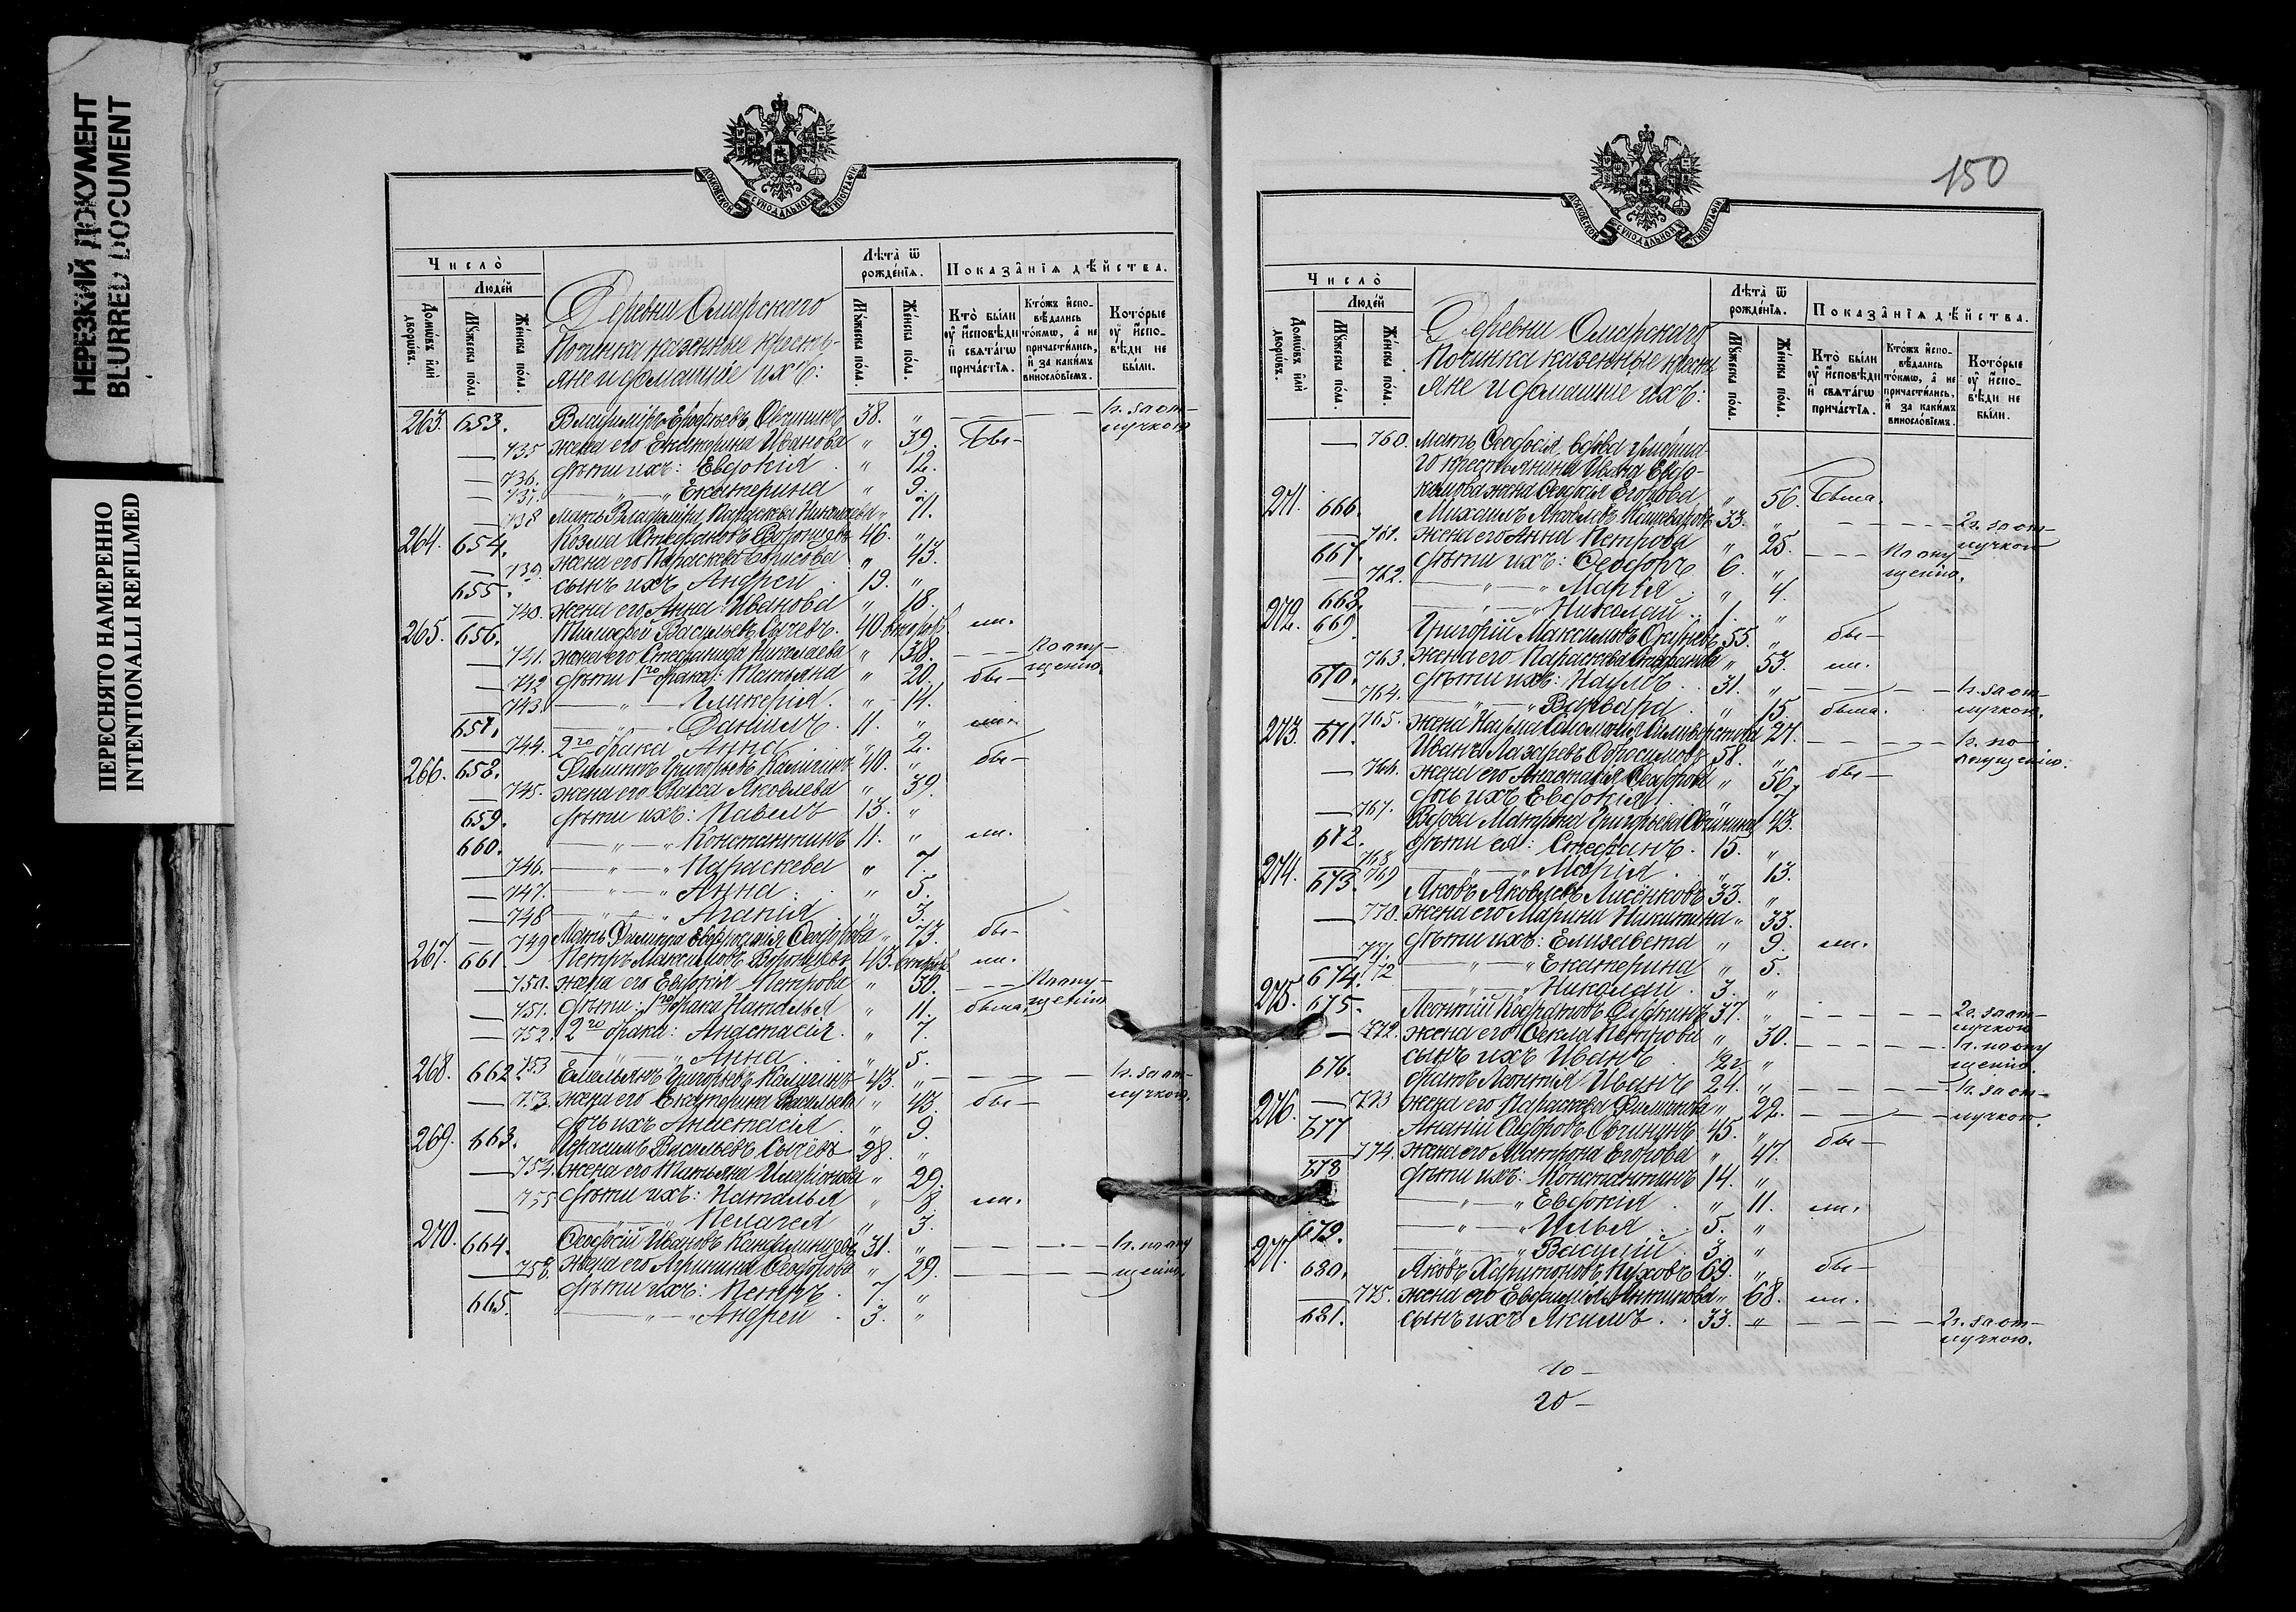 НЕРЕЗКИЙ ДОКУМЕНТ
BLURRED DOCUMENT
ПЕРЕСНЯТО НАМЕРЕННО
INTENTIONALLI REFILMED
МОСКОВСКОЙ СѴНОДАЛЬНОЙ ТИПОГРАФІИ
Число̀
Люде́й
Домѡ́въ и҆лѝ дворѡ́въ.
Мꙋ́жеска по́ла
Же́нска по́ла.
Деревни Омарскаго
Починка казенные кресть-
яне и домашніе ихъ:
Лѣта̀ ѿ рожде́нїѧ.
Мꙋ́жеска по́ла.
Же́нска по́ла.
Показа̑нїѧ дѣ́йства.
Кто̀ бы́ли ᲂу҆ и҆сповѣ́ди и҆ свѧта́гѡ прича́стїѧ.
Кто́жъ и҆спо-вѣ́дались то́кмѡ, а҆ не причасти́лись, и҆ за каки́мъ винословїемъ.
Кото́рые ᲂу҆ и҆спо-вѣ́ди не бы́ли.
263. 653. Владиміръ Ерофѣевъ Овчинниковъ 38. " — — — 1г. за от-
лучкою
— 735 жена его Екатерина Иванова " 39. Бы-
— 736. дѣти ихъ: Евдокія " 12.
— 737. — " — " Екатерина " 9.
— 738 мать Владиміра, Параскева Николаева " 71.
264. 654. Козма Стефановъ 46. "
— 739. жена его Параскева Борисова " 43.
655. сынъ ихъ Андрей 19. "
— 740. жена его Анна Иванова " 18.
265. 656. Тимофей Васильевъ Сычевъ. 40 вторбр. ли.
— 741. жена его Стефанида Николаева " 38. — — — По опу-
щенію.
— 742 дѣти 1го брака: Татьяна " 20. бы-
— 743. — " — Гликерія " 14.
657. — " — Даніилъ 11. " ли.
— 744. 2го брака Анна " 2.
266. 658. Филиппъ Григорьевъ Калягинъ 40. " бы-
— 745. жена его Васса Яковлева " 39.
659. дѣти ихъ: Павелъ 13. "
660. — " — " Константинъ 11. " ли.
— 746. — " — " Параскева " 7.
— 747. — " — " Анна " 5.
— 748 — " — " Агапія " 3.
— 749 Мать Филиппа Евфросинія Ѳеодорова " 73. бы-
267. 661 Петръ Максимовъ 43. вторбр. ли.
— 750. жена его Евдокія Петрова " 30. — — — По опу-
щенію
— 751. дѣти: 1го брака Наталья " 11. была.
— 752. 2го брака: Анастасія " 7.
753 — " — " Анна " 5.
268. 662. Емельянъ Григорьевъ Калягинъ 43. " — — — 1г. за от-
лучкою.
— 753. жена его Екатерина Васильева " 43. бы-
дочь ихъ Анастасія " 9.
269. 663. Герасимъ Васильевъ Сычёвъ 28. "
— 754. жена его Татьяна Иларіонова " 29.
— 755 дѣти ихъ: Наталья " 8. ли.
— " — Пелагея " 3.
270. 664. Ѳеодосій Ивановъ 31. " — — — 1г. по опу
щенію,
— 758. жена его Агрипина Ѳеодорова " 29. — — — —
дѣти ихъ: Петръ 7. "
665. — " — " Андрей 3. "
150
МОСКОВСКОЙ СѴНОДАЛЬНОЙ ТИПОГРАФІИ
Число̀
Люде́й
Домѡ́въ и҆лѝ дворѡ́въ.
Мꙋ́жеска по́ла
Же́нска по́ла.
Деревни Омарскаго
Починка казенные кресть
яне и домашніе ихъ:
Лѣта̀ ѿ рожде́нїѧ.
Мꙋ́жеска по́ла.
Же́нска по́ла.
Показа̑нїѧ дѣ́йства.
Кто̀ бы́ли ᲂу҆ и҆сповѣ́ди и҆ свѧта́гѡ прича́стїѧ.
Кто́жъ и҆спо-вѣ́дались то́кмѡ, а҆ не причасти́лись, и҆ за каки́мъ винословїемъ.
Кото́рые ᲂу҆ и҆спо-вѣ́ди не бы́ли.
— 760. мать Ѳеодосія, вдова
го крестьянина Ивана Евдо-
кимова жена Ѳеодосія Егорова " 56. Была.
271. 666. Михаилъ Яковлевъ Кашеваровъ 33. " — — — — 2г. за от-
лучкою
— 761. жена его Анна Петрова " 25. — — — По опу
щенію.
667. дѣти ихъ: Ѳеодоръ 6. "
— 762. — " — " Марія " 4.
668. — " — " Николай 1. "
272. 669. Григорій Максимовъ Окуневъ 55. " бы-
— 763. жена его Параскева Стефанова " 53. ли.
670. дѣти ихъ: Наумъ 31. " — — — — 1г. за от-
лучкою.
— 764. — " — " Варвара " 15 была.
— 765. жена Наума Соломонія Сильверстова " 27. — — — — 1г. по
опущенію.
273. 671. Иванъ Лазаревъ 58. "
— 766. жена его Анастасія Ѳеодорова " 56, бы-
дочь ихъ Евдокія " 7
— 767. Вдова Матрона Григорьева Овчинникова 43.
672. дѣти ея: Стефанъ 15. "
— 768 — " — Марія " 13.
274. 673. Яковъ Яковлевъ Лисёнковъ 33. "
— 770. жена его Марина Никитина " 33.
— 771. дѣти ихъ: Елизавета " 9. ли.
772 — " — " Екатерина " 5.
674. — " — " Николай 3. "
275. 675. Леонтій Кодратовъ 37. " — — — — 2г. за от-
лучкою
— 772. жена его Ѳекла Петрова " 30. — — — — 1г. по опу
щенію.
676. сынъ ихъ Иванъ 1/2 "
братъ Леонтія Иванъ 24. " — — — — 1г. за от-
лучкою.
— 773 жена его Параскева Филипова " 22. — — — —
276. 677 Ананій Сидоровъ Овчининъ 45. " бы-
— 774. жена его Матрона Егорова " 47.
678 дѣти ихъ: Константинъ 14. "
— " — " Евдокія " 11. ли.
679. — " — " Илья 5. "
— " — " Василій 3. "
277. 680. Яковъ Харитоновъ Пуховъ 69. " бы-
— 775. жена его Евфимія Антипова " 68. ли.
681. сынъ ихъ Акимъ 33. " — — — — 2г. за от-
лучкою.
10 —
20 —